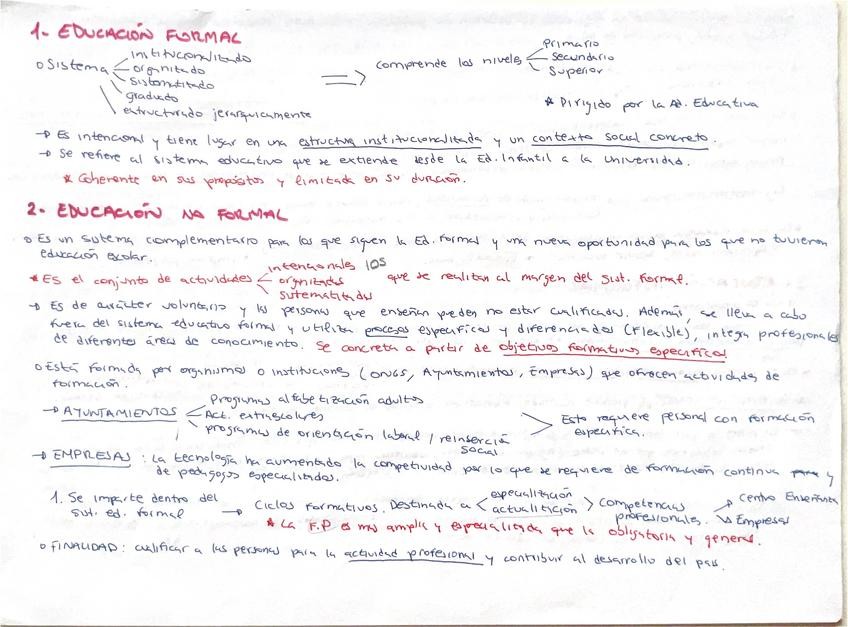 1- EDUCACIÓN FORMAL
o Sistema
institucionalizado
organizado
sistematizado
graduado
estructurado jerárquicamente
=> comprende los niveles
Primario
Secundario
Superior
* Dirigido por la Ad. Educativa
→ Es intencional y tiene lugar en una estructura institucionalizada y un contexto social concreto.
→ Se refiere al sistema educativo que se extiende desde la Ed. Infantil a la universidad.
* Coherente en sus propósitos y limitada en su duración.
2- EDUCACIÓN NO FORMAL
o Es un sistema complementario para los que siguen la Ed. formal y una nueva oportunidad para los que no tuvieron
educación escolar.
* ES el conjunto de actividades
intencionales IOS
organizadas
sistematizadas
que se realizan al margen del Sist. Formal.
→ Es de carácter voluntario y las personas que enseñan pueden no estar cualificados. Además, se lleva a cabo
fuera del sistema educativo formal y utiliza procesos específicos y diferenciados (Flexible), integra profesionales
de diferentes área de conocimiento. Se concreta a partir de objetivos formativos específicos
o Está formada por organismos o instituciones (ONGs, Ayuntamientos, Empresas) que ofrecen actividades de
formación.
→ AYUNTAMIENTOS
Programas alfabetización adultos
Act. extraescolares
programas de orientación laboral / reinserción
social
Esto requiere personal con formación
específica.
→ EMPRESAS: La tecnología ha aumentado la competividad por lo que se requiere de formación continua y
de pedagogos especializados.
1. Se imparte dentro del
sist. ed. formal
→ Ciclos Formativos. Destinada a
especialización
actualización
> Competencias
profesionales.
→ Centro Enseñanza
↘ Empresas
* La F.P es mas amplia y especializada que la obligatoria y general.
o FINALIDAD: cualificar a las personas para la actividad profesional y contribuir al desarrollo del país.